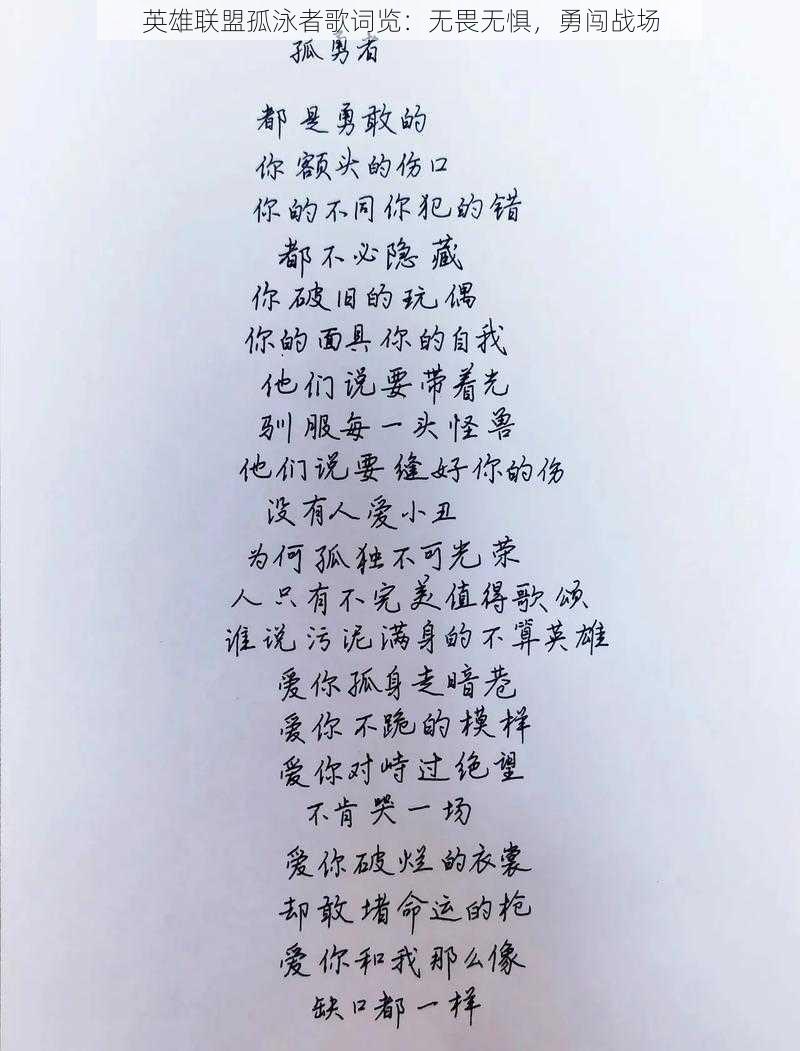 英雄联盟孤泳者歌词览：无畏无惧，勇闯战场
孤勇者
都是勇敢的
你额头的伤口
你的不同你犯的错
都不必隐藏
你破旧的玩偶
你的面具你的自我
他们说要带着光
驯服每一头怪兽
他们说要缝好你的伤
没有人爱小丑
为何孤独不可光荣
人只有不完美值得歌颂
谁说污泥满身的不算英雄
爱你孤身走暗巷
爱你不跪的模样
爱你对峙过绝望
不肯哭一场
爱你破烂的衣裳
却敢堵命运的枪
爱你和我那么像
缺口都一样